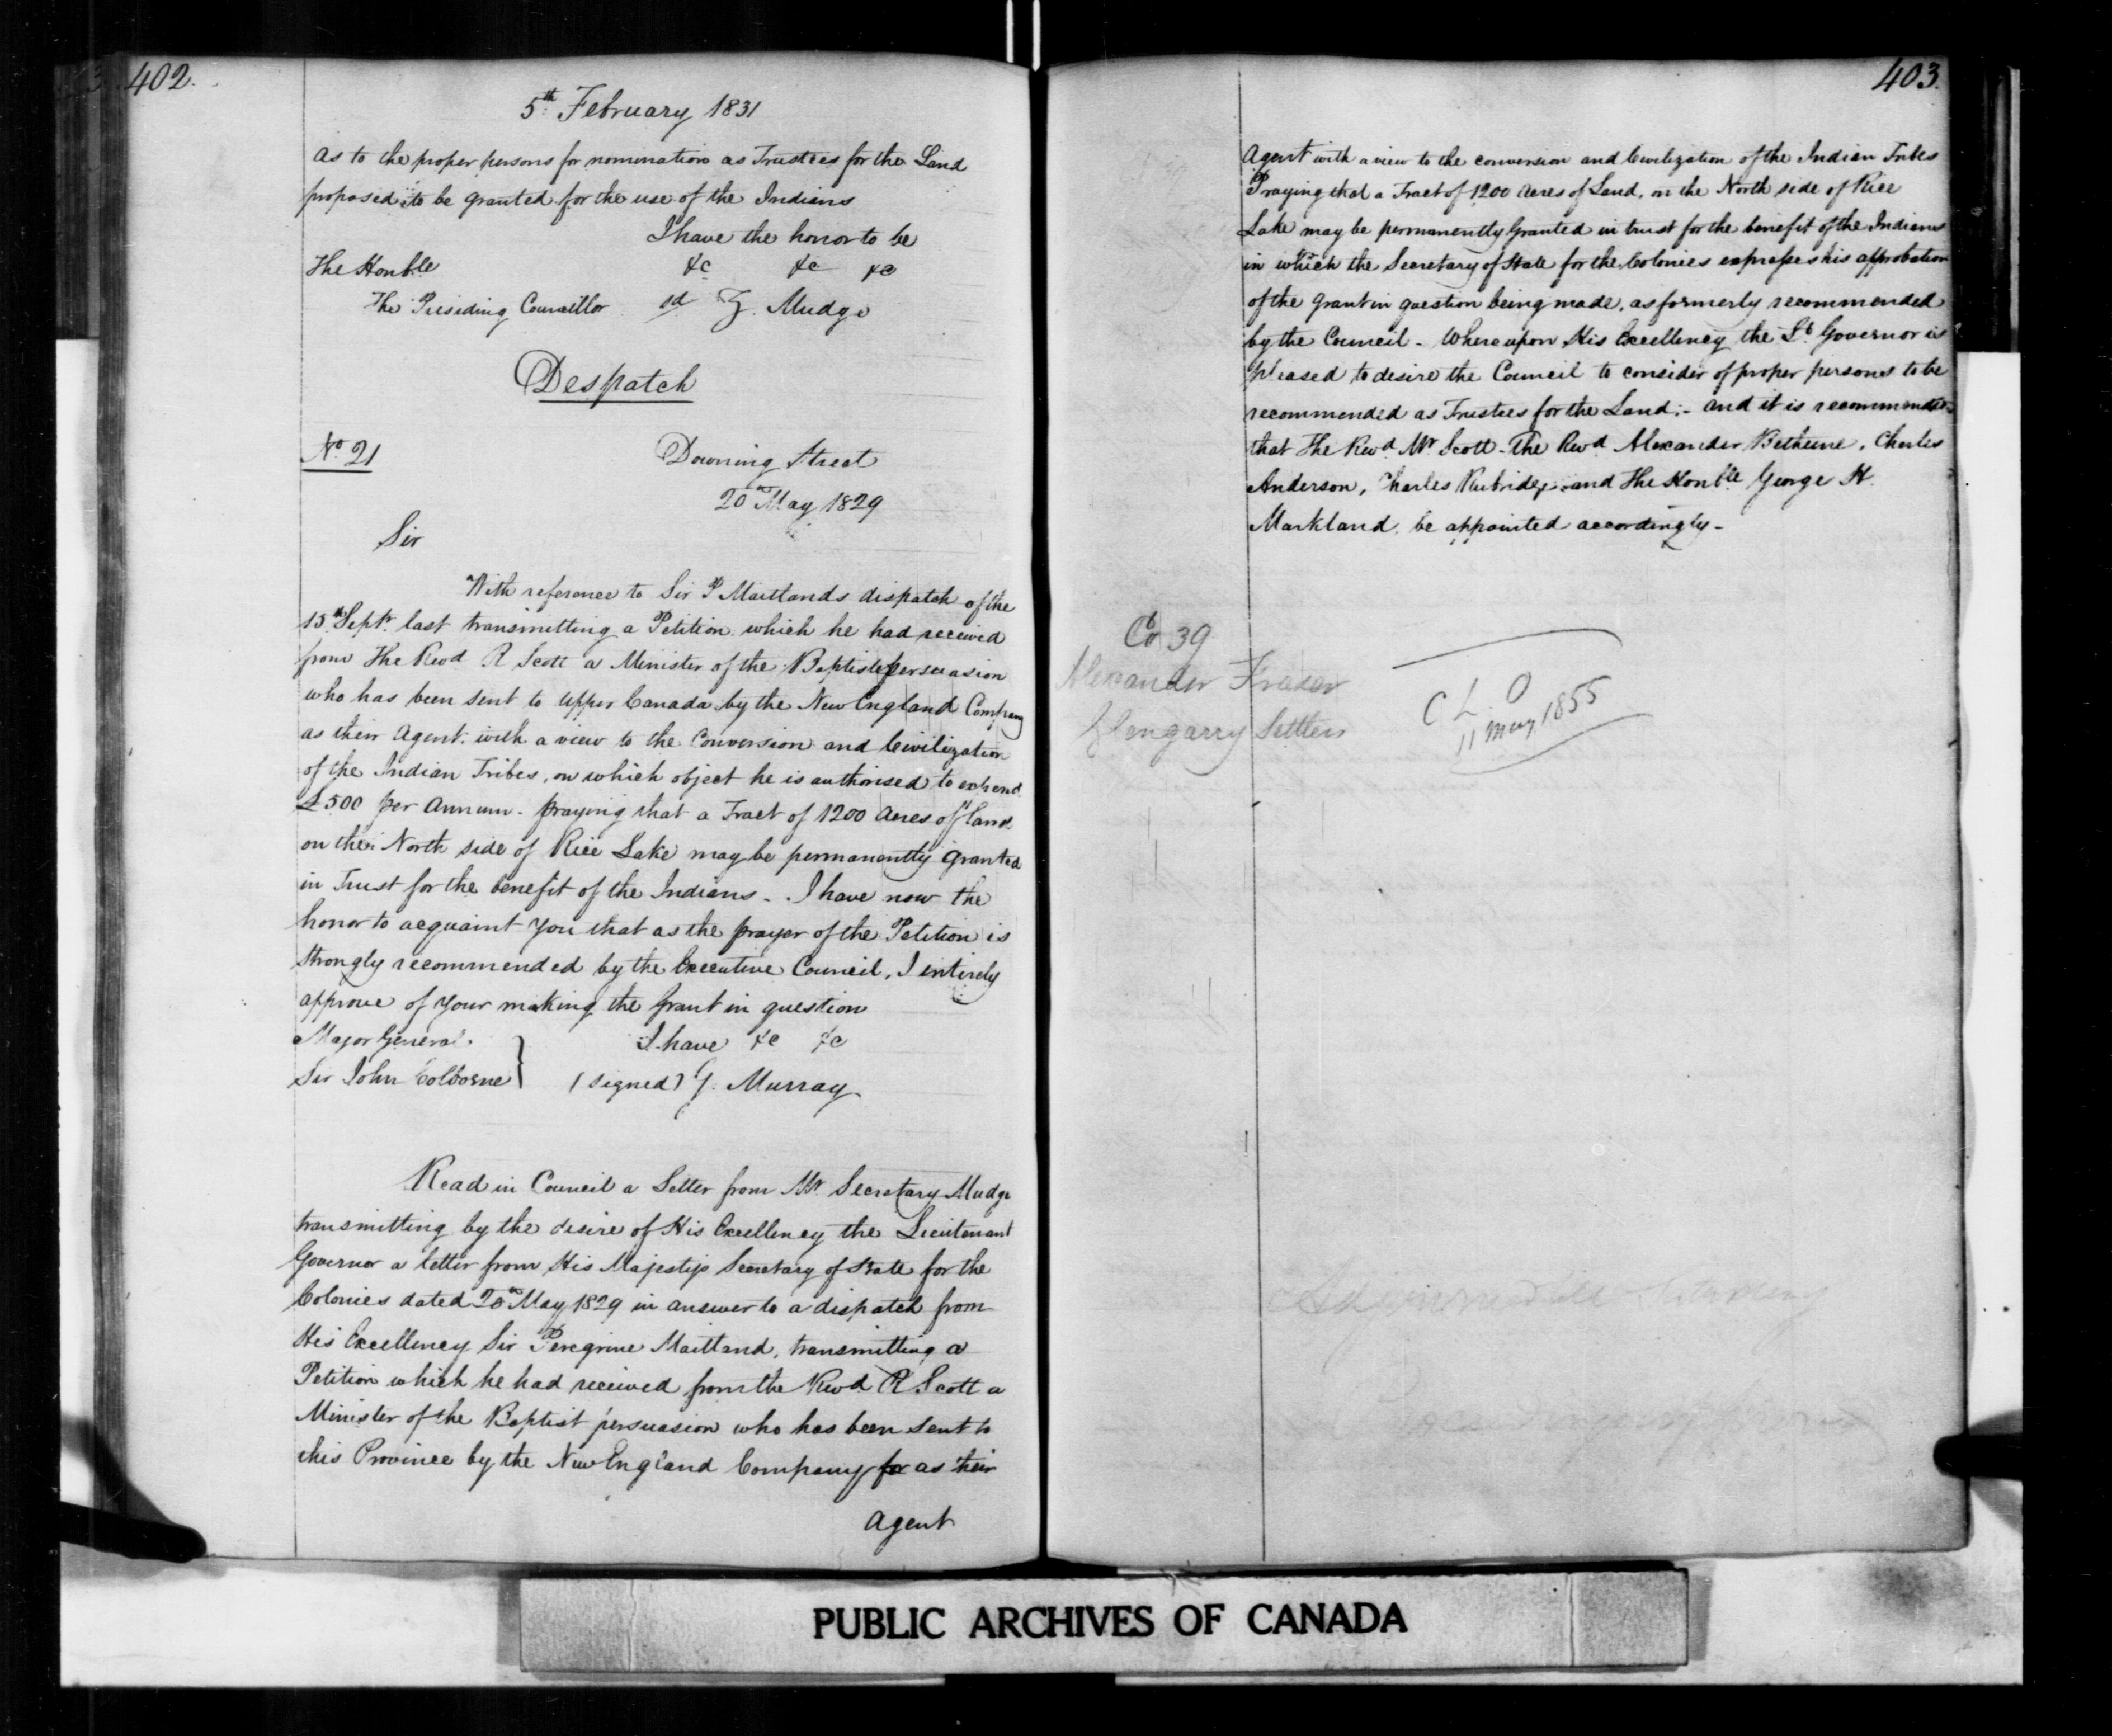 402.
5th February 1831
as to the proper persons for nomination as Trustees for the Land
proposed to be granted for the use of the Indians
I have the honor to be
The Honble &c &c &c
The Presiding Councillor sd Z. Mudge
Despatch
No. 21 Downing Street
20th May 1829
Sir
With reference to Sir P Maitlands dispatch of the
15th Septr. last transmitting a Petition which he had received
from The Revd R Scott a Minister of the Baptist persuasion
who has been sent to Upper Canada by the New England Company
as their Agent. with a view to the Conversion and Civilization
of the Indian Tribes, on which object he is authorised to expend
£500 per Annum - praying that a Tract of 1200 Acres of land
on the North side of Rice Lake may be permanently granted
in Trust for the benefit of the Indians - I have now the
honor to acquaint You that as the prayer of the Petition is
strongly recommended by the Executive Council, I entirely
approve of your making the Grant in question
Major General I have &c &c
Sir John Colborne } (signed) G. Murray
Read in Council a Letter from Mr Secretary Mudge
transmitting by the desire of His Excellency the Lieutenant
Governor a letter from His Majestys Secretary of State for the
Colonies dated 20th May 1829 in answer to a dispatch from
His Excellency Sir Peregrine Maitland, transmitting a
Petition which he had received from the Revd R Scott a
Minister of the Baptist persuasion who has been sent to
this Province by the New England Company for as their
Agent
403.
Agent with a view to the conversion and Civilization of the Indian Tribes
Praying that a Tract of 1200 Acres of Land, on the North side of Rice
Lake may be permanently Granted in trust for the benefit of the Indians
in which the Secretary of State for the Colonies expresses his approbation
of the Grant in question being made, as formerly recommended
by the Council - Whereupon His Excellency the Lt. Governor is
pleased to desire the Council to consider of proper persons to be
recommended as Trustees for the Land; - and it is recommended
that The Revd. Mr Scott - The Revd Alexander Bethune, Charles
Anderson, Charles Rubridge, and The Honble George H.
Markland, be appointed accordingly -
Co 39
Alexander Fraser
Glengarry Settlers
C L O
11 May 1855
PUBLIC ARCHIVES OF CANADA